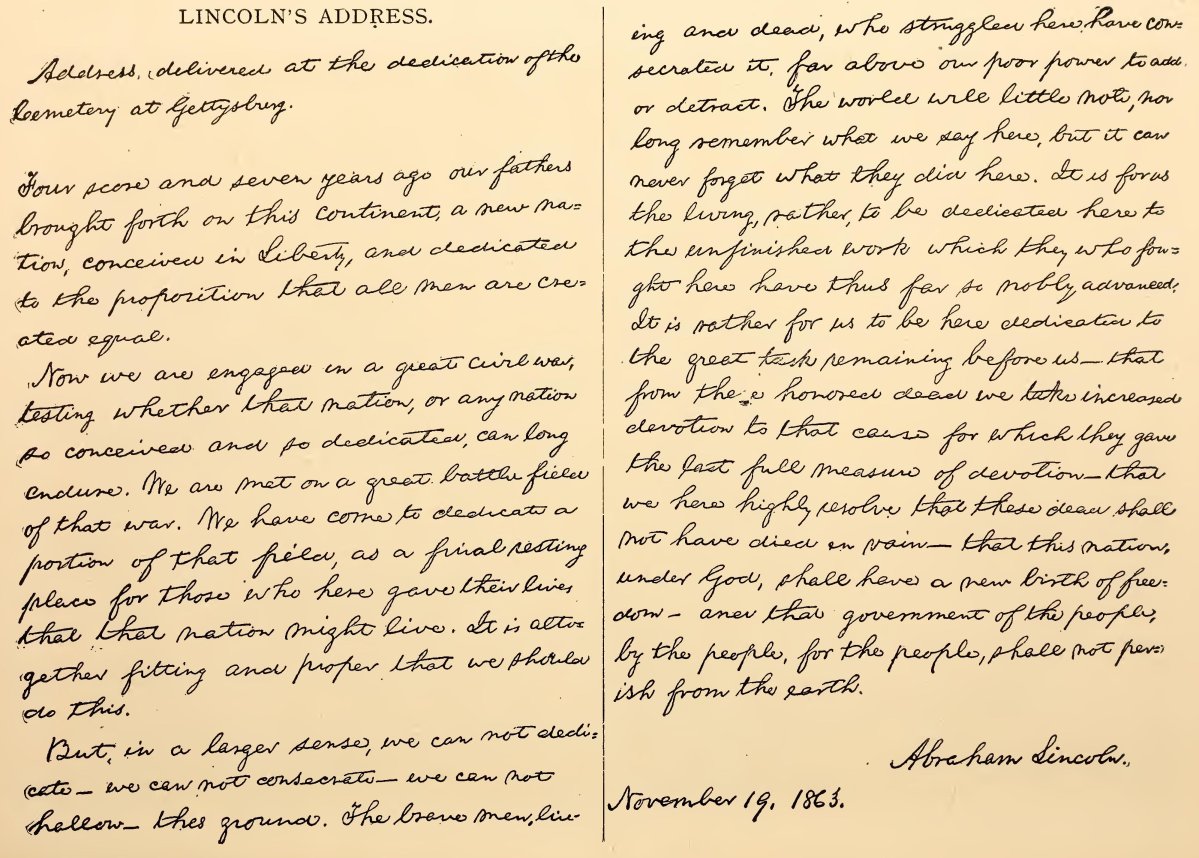 LINCOLN'S ADDRESS.
Address, delivered at the dedication of the
Cemetery at Gettysburg.
Four score and seven years ago our fathers
brought forth on this continent, a new na=
tion, conceived in Liberty, and dedicated
to the proposition that all men are cre=
ated equal.
Now we are engaged in a great civil war,
testing whether that nation, or any nation
so conceived and so dedicated, can long
endure. We are met on a great battle field
of that war. We have come to dedicate a
portion of that field, as a final resting
place for those who here gave their lives
that that nation might live. It is alto=
gether fitting and proper that we should
do this.
But, in a larger sense, we can not dedi=
cate — we can not consecrate — we can not
hallow — this ground. The brave men, liv=
ing and dead, who struggled here, have con=
secrated it, far above our poor power to add
or detract. The world will little note, nor
long remember what we say here, but it can
never forget what they did here. It is for us
the living, rather, to be dedicated here to
the unfinished work which they who fou=
ght here have thus far so nobly advanced.
It is rather for us to be here dedicated to
the great task remaining before us — that
from these honored dead we take increased
devotion to that cause for which they gave
the last full measure of devotion — that
we here highly resolve that these dead shall
not have died in vain — that this nation,
under God, shall have a new birth of free=
dom — and that government of the people,
by the people, for the people, shall not per=
ish from the earth.
Abraham Lincoln.
November 19, 1863.